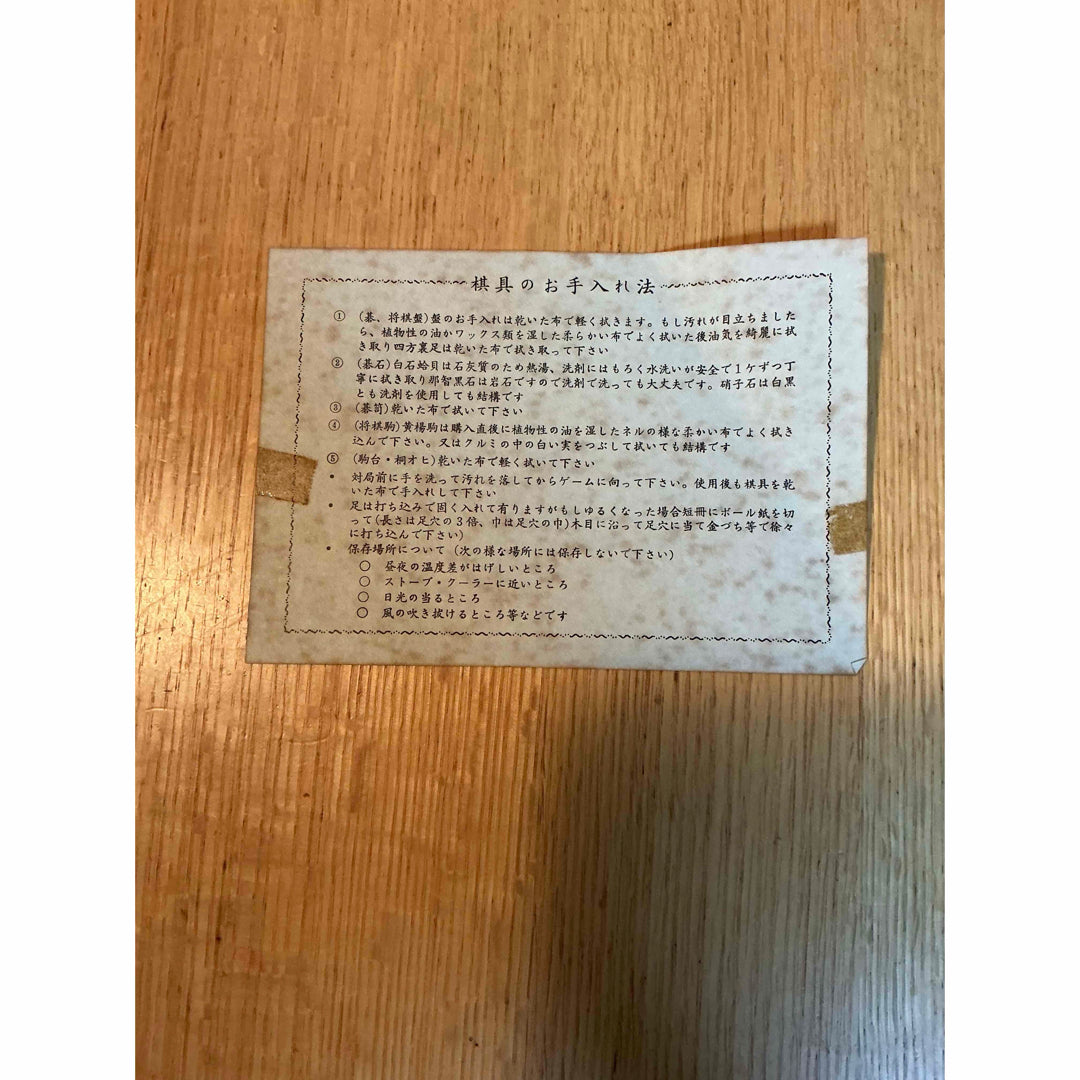 棋具のお手入れ法
① (碁、将棋盤)盤のお手入れは乾いた布で軽く拭きます。もし汚れが目立ちました
ら、植物性の油かワックス類を湿した柔らかい布でよく拭いた後油気を綺麗に拭
き取り四方裏足は乾いた布で拭き取って下さい
② (碁石)白石蛤貝は石灰質のため熱湯、洗剤にはもろく水洗いが安全で1ケずつ丁
寧に拭き取り那智黒石は岩石ですので洗剤で洗っても大丈夫です。硝子石は白黒
とも洗剤を使用しても結構です
③ (碁笥)乾いた布で拭いて下さい
④ (将棋駒)黄楊駒は購入直後に植物性の油を湿したネルの様な柔かい布でよく拭き
込んで下さい。又はクルミの中の白い実をつぶして拭いても結構です
⑤ (駒台・桐オヒ)乾いた布で軽く拭いて下さい
• 対局前に手を洗って汚れを落してからゲームに向って下さい。使用後も棋具を乾
いた布で手入れして下さい
• 足は打ち込みで固く入れて有りますがもしゆるくなった場合短冊にボール紙を切
って(長さは足穴の3倍、巾は足穴の巾)木目に沿って足穴に当て金づち等で徐々
に打ち込んで下さい)
• 保存場所について (次の様な場所には保存しないで下さい)
○ 昼夜の温度差がはげしいところ
○ ストーブ・クーラーに近いところ
○ 日光の当るところ
○ 風の吹き抜けるところ等などです